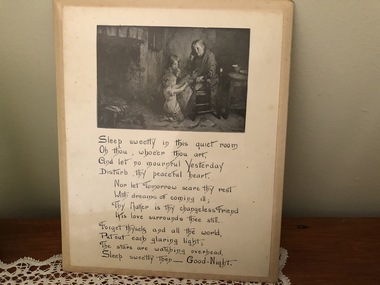 Sleep sweetly in this quiet room
Oh thou, whoe'er thou art,
And let no mournful Yesterday
Disturb thy peaceful heart.
Nor let Tomorrow scare thy rest
With dreams of coming ill;
Thy Maker is thy changeless Friend
His love surrounds thee still.
Forget thyself and all the world,
Put out each glaring light;
The stars are watching overhead,
Sleep sweetly then — Good-Night.